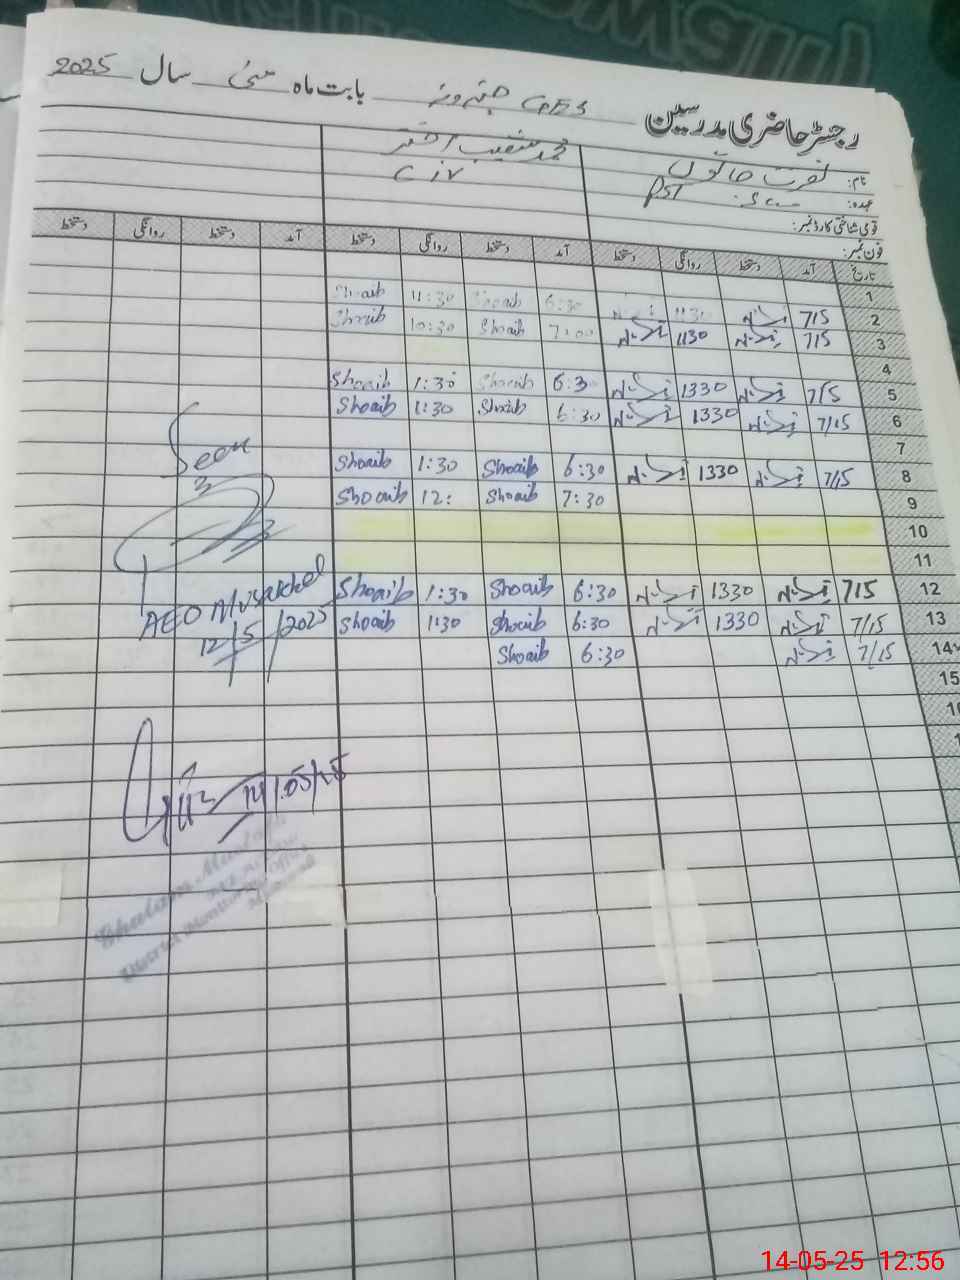 رجسٹر حاضری مدرسین GES بابت ماہ مئی سال 2025
نام: نصرت خاتون محمد شعیب اختر
عہدہ: PST Civ
قومی شناختی کارڈ نمبر:
فون نمبر:
تاریخ آمد دستخط روانگی دستخط آمد دستخط روانگی دستخط آمد دستخط روانگی دستخط
1
2 715 1130 6:30 Shoaib 11:30 Shoaib
3 715 1130 7:00 Shoaib 10:30 Shoaib
4
5 7/5 1330 6:30 Shoaib 1:30 Shoaib
6 7/15 1330 6:30 Shoaib 1:30 Shoaib
7
8 7/15 1330 6:30 Shoaib 1:30 Shoaib
9 7:30 Shoaib 12: Shoaib
10
11
12 715 1330 6:30 Shoaib 1:30 Shoaib
13 7/15 1330 6:30 Shoaib 1:30 Shoaib
14 7/15 6:30 Shoaib
15
Seen
AEO
12/5/2025
14/05/25
Ghulam Mustafa
District Monitoring Officer
14-05-25 12:56